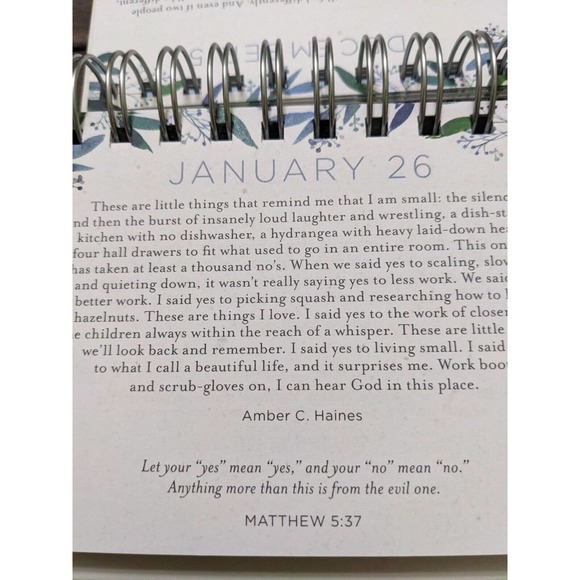 DECEMBER
differently. And even if two people
different.
JANUARY 26
These are little things that remind me that I am small: the
then the burst of insanely loud laughter and wrestling, a
kitchen with no dishwasher, a hydrangea with heavy laid-down
four hall drawers to fit what used to go in an entire room. This
has taken at least a thousand no's. When we said yes to scaling,
and quieting down, it wasn't really saying yes to less work. We
better work. I said yes to picking squash and researching how to
hazelnuts. These are things I love. I said yes to the work of
children always within the reach of a whisper. These are little
we'll look back and remember. I said yes to living small. I said
to what I call a beautiful life, and it surprises me. Work
and scrub-gloves on, I can hear God in this place.
Amber C. Haines
Let your “yes” mean “yes,” and your “no” mean “no.”
Anything more than this is from the evil one.
MATTHEW 5:37